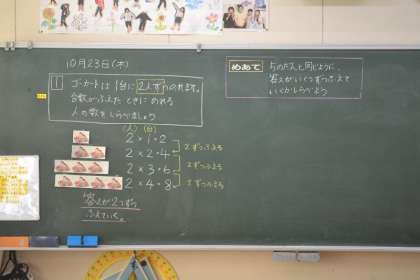 10月23日(木)
1 ゴーカートは1台に2人ずつのれます。
台数がふえたときにのれる
人の数をしらべましょう
めあて 5のだんと同じように、
答えがいくつずつふえて
いくかしらべよう
(人) (台)
2×1=2
2×2=4
2×3=6
2×4=8
2ずつふえる
2ずつふえる
2ずつふえる
答えが2つずつ
ふえていく。